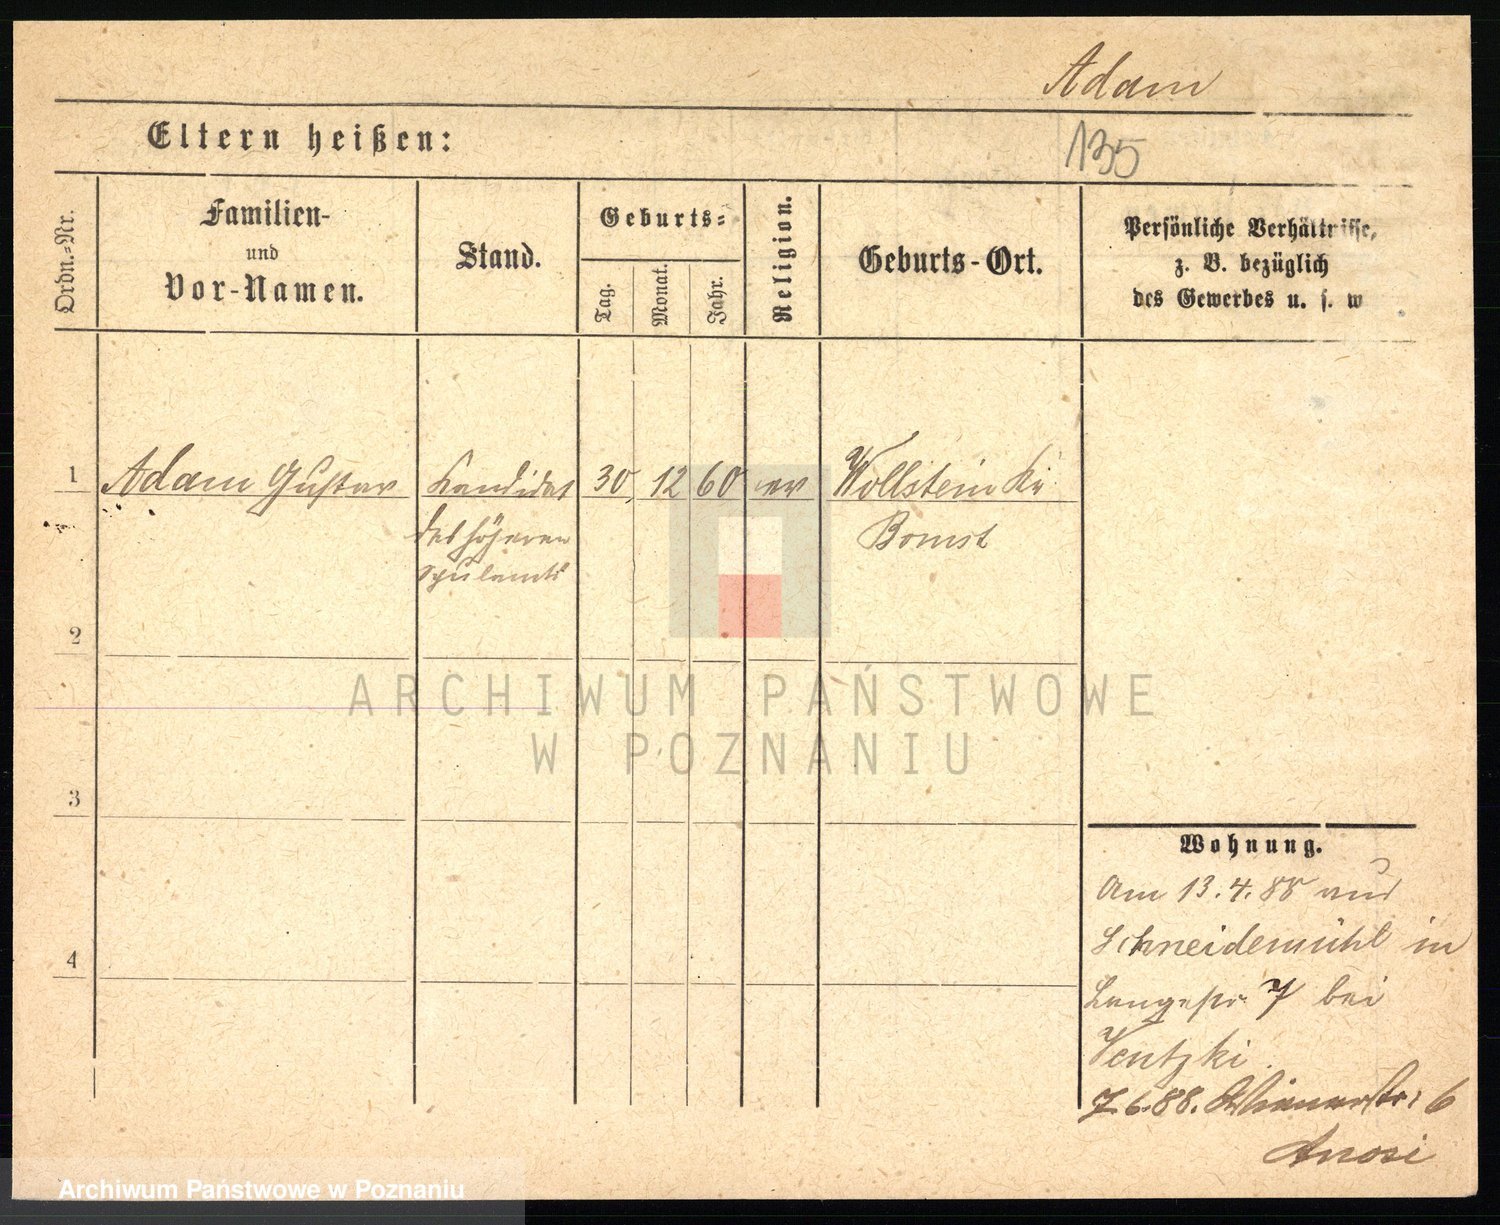 Adam
Eltern heißen:
135
Ordn.-Nr.
Familien-
und
Vor-Namen.
Stand.
Geburts-
Tag.
Monat.
Jahr.
Religion.
Geburts-Ort.
Persönliche Verhältnisse,
z. B. bezüglich
des Gewerbes u. s. w
1
Adam Gustav
Kandidat
30. 12 60
ev
Wollstein Kr
des höheren
Schulamts
Bomst
2
3
4
ARCHIWUM PAŃSTWOWE
W POZNANIU
Wohnung.
Am 13.4.88 aus
Schneidemühl in
Langestr. 7 bei
Ventzki.
7.6.88. Wienerstr. 6
Archiwum Państwowe w Poznaniu